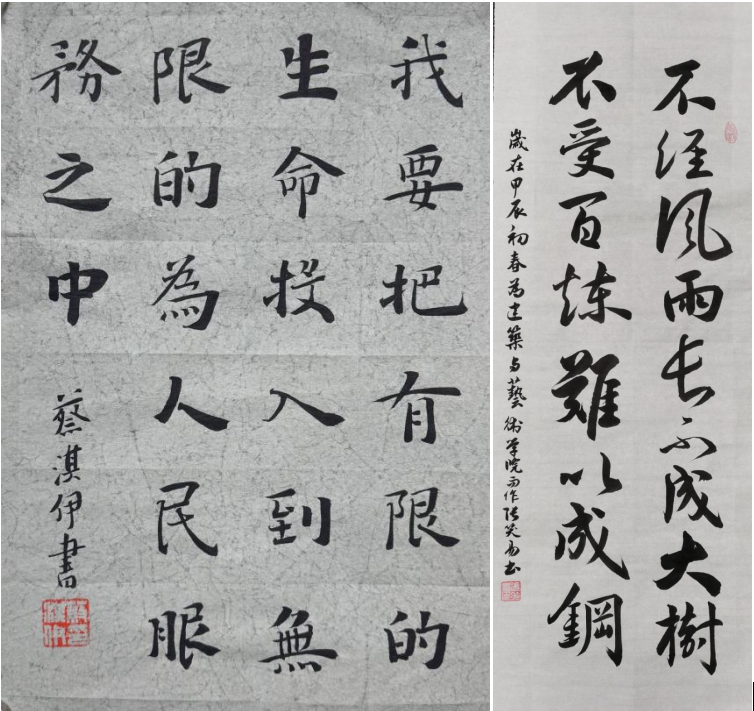 我要把有限的
生命投入到無
限的為人民服
務之中
蔡淇伊書
不经风雨长不成大樹
不受百煉難以成鋼
歲在甲辰初春為建築与藝術学院而作張笑易书